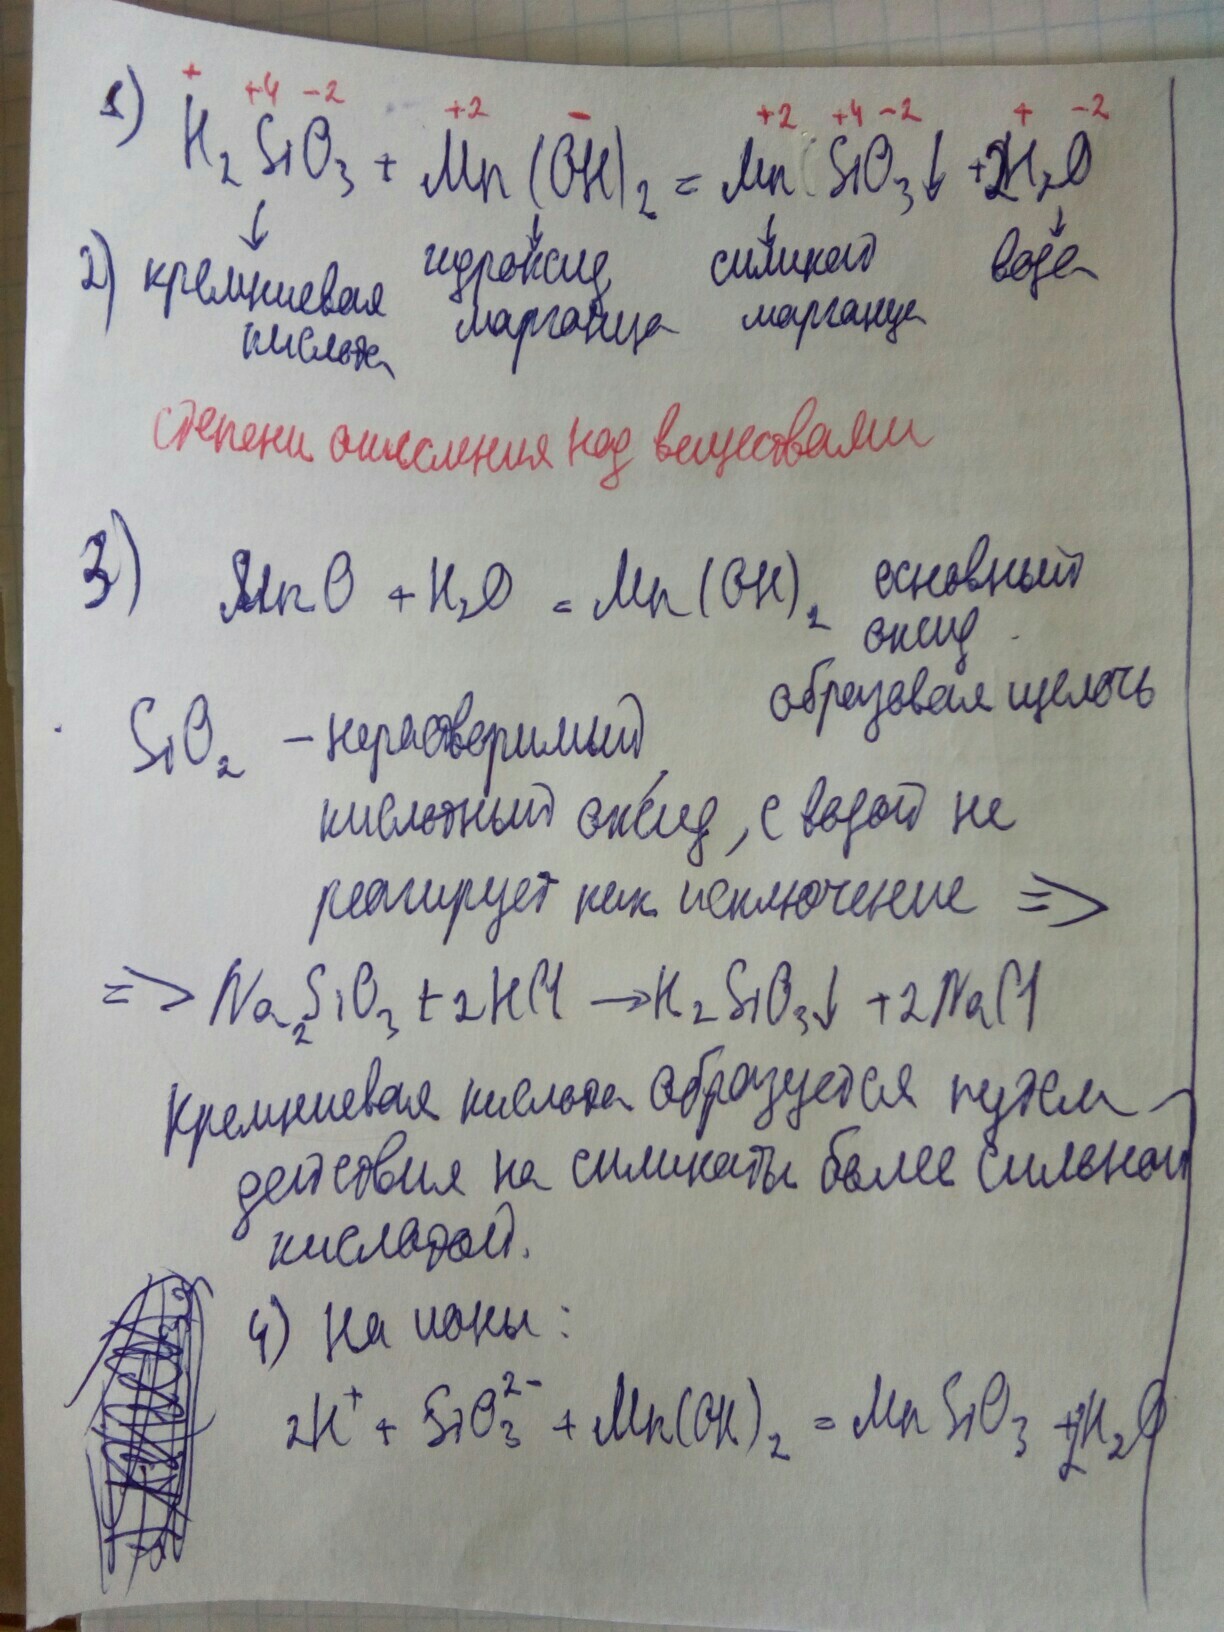 + +4 -2 +2 - +2 +4 -2 + -2
1) H₂SiO₃ + Mn(OH)₂ = MnSiO₃↓ + 2H₂O
2) кремниевая кислота гидроксид марганца силикат марганца вода
степени окисления над веществами
3) MnO + H₂O = Mn(OH)₂ основный
оксид
образовал щелочь
SiO₂ – нерастворимый
кислотный оксид, с водой не
реагирует как исключение =>
=> Na₂SiO₃ + 2HCl → H₂SiO₃↓ + 2NaCl
Кремниевая кислота образуется путем
действия на силикаты более сильной
кислотой.
4) На ионы:
2H⁺ + SiO₃²⁻ + Mn(OH)₂ = MnSiO₃ + 2H₂O